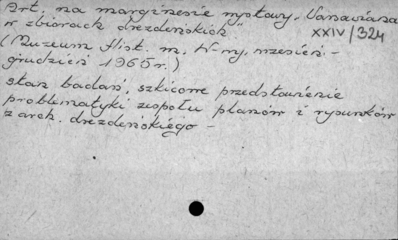 Art. na marginesie wystawy "Varsaviana
w zbiorach drezdeńskich"
XXIV/324
(Muzeum Hist. m. W-wy, wrzesień -
grudzień 1965 r.)
stan badań, szkicowe przedstawienie
problematyki zespołu planów i rysunków
z arch. drezdeńskiego -